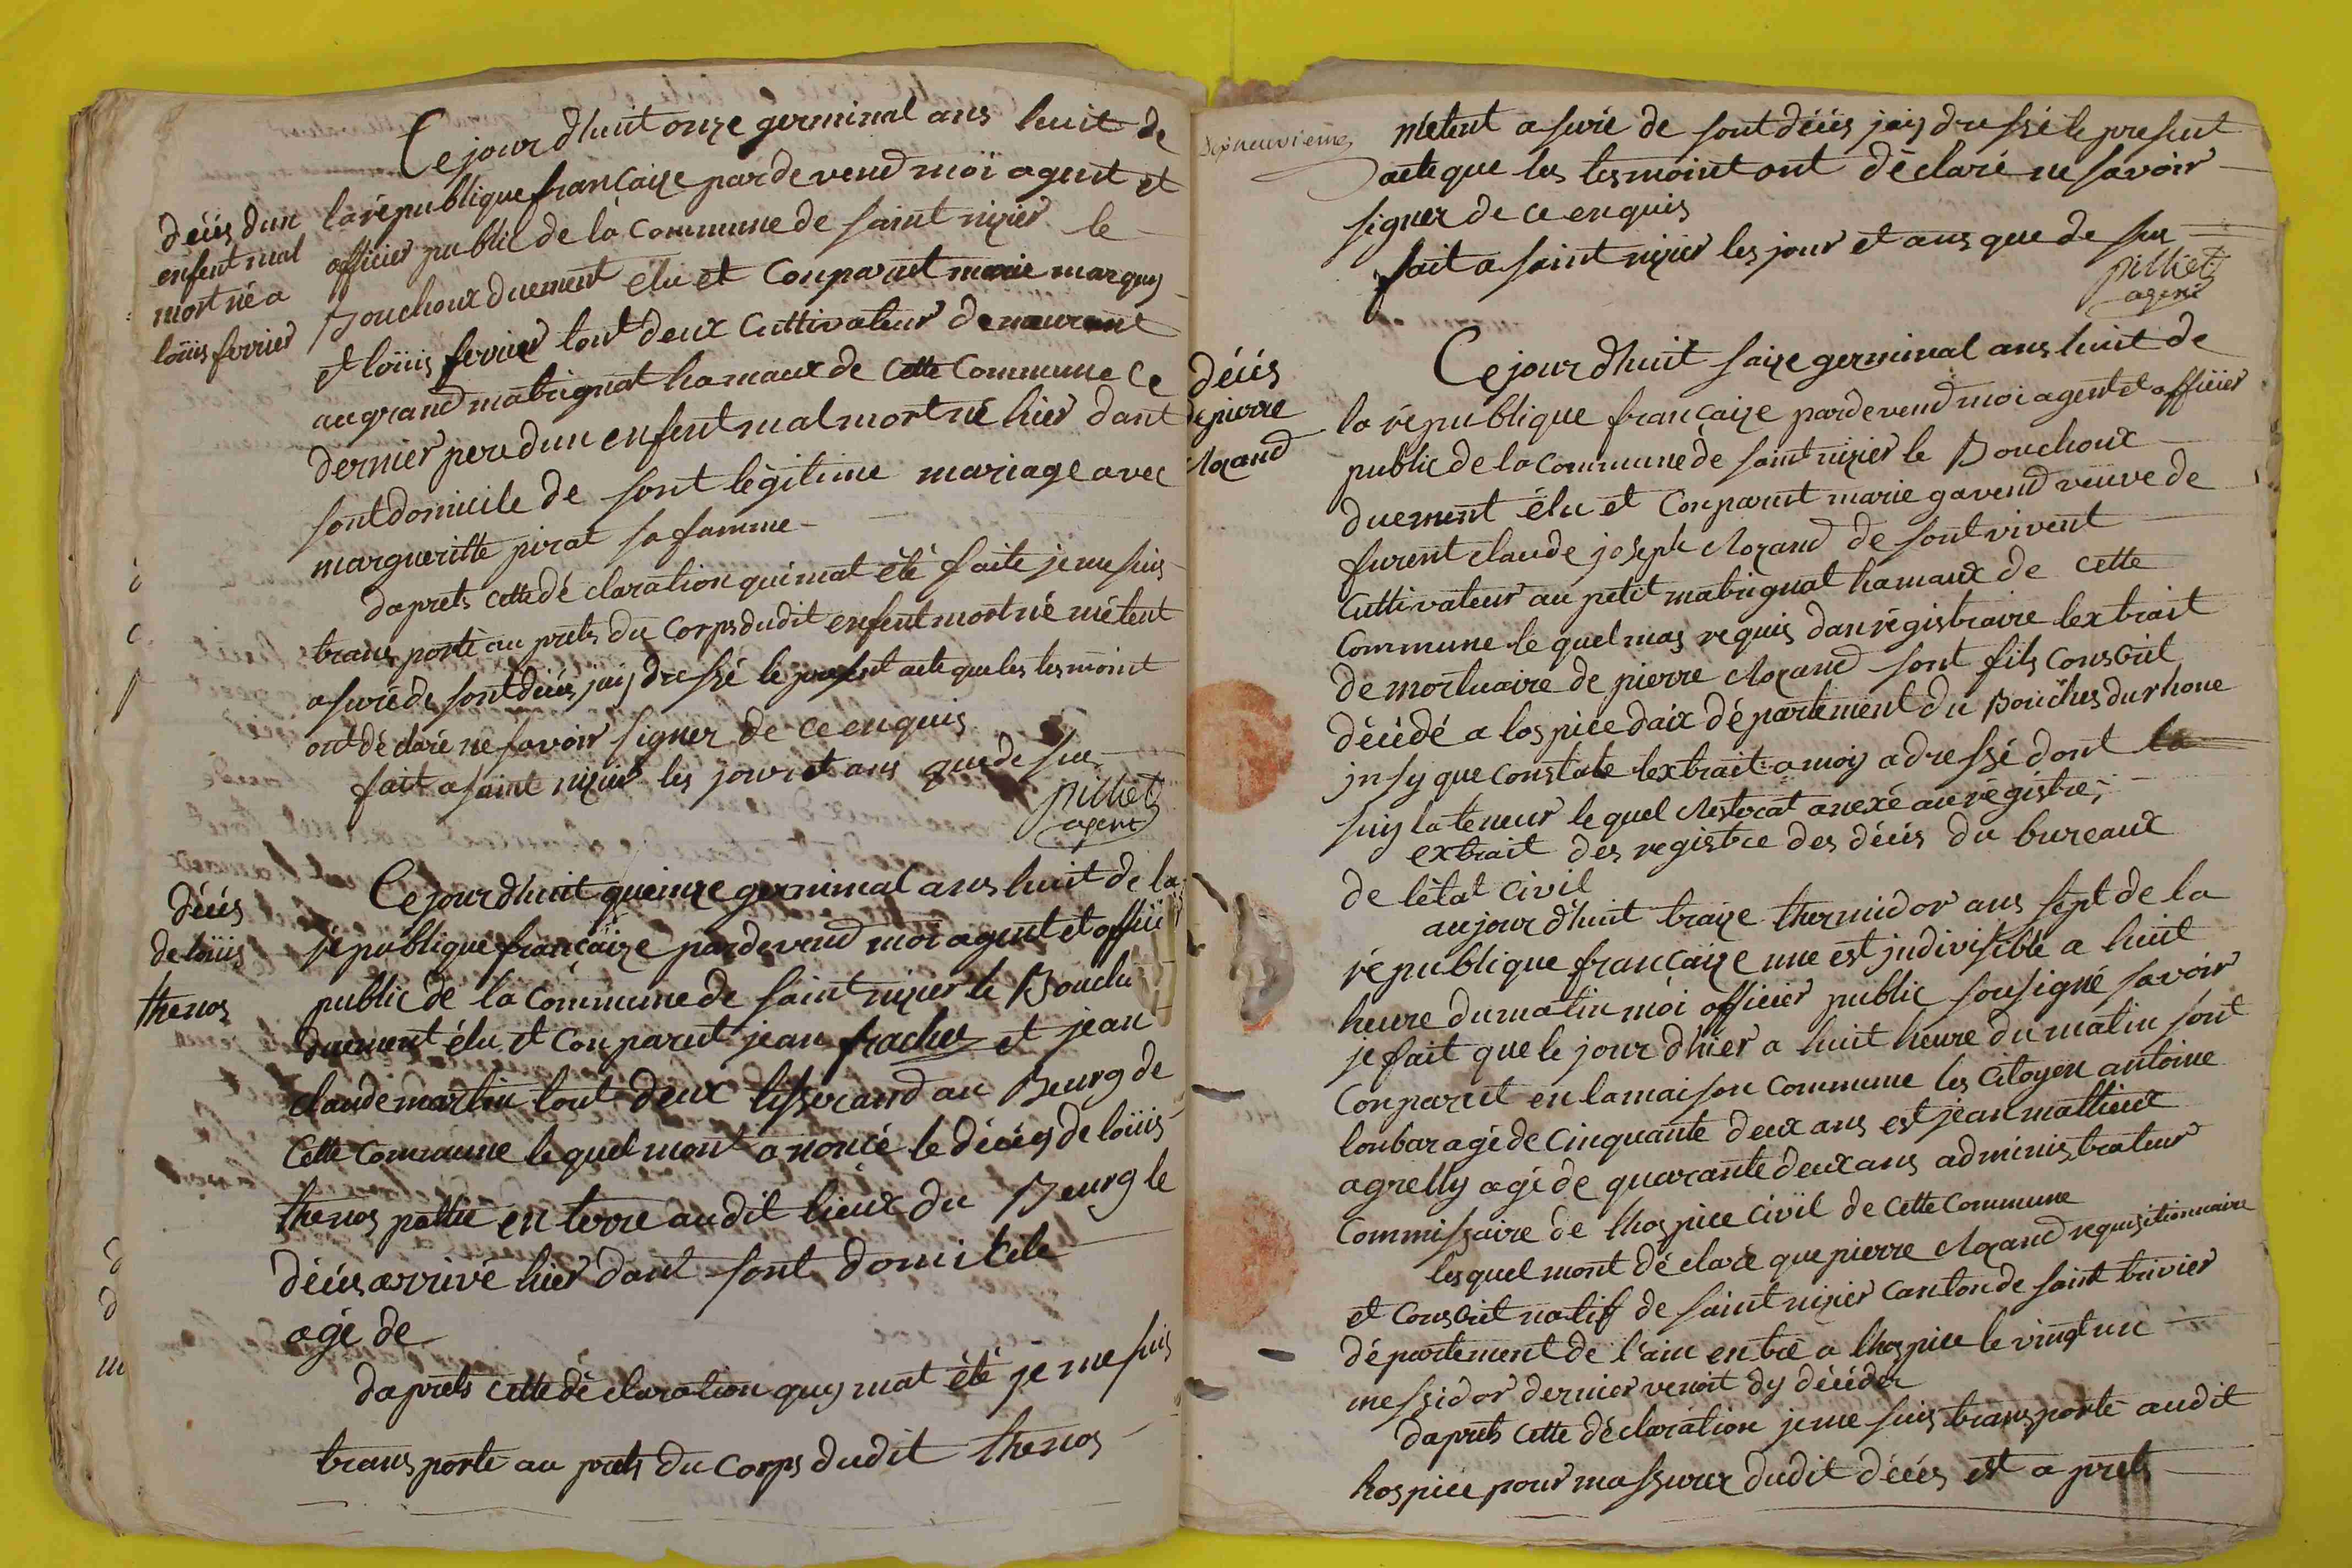 Ce jour dhuit onze germinal ans huit de
la république françaize pardevend moï agent et
officier public de la Commune de saint nizier le
Bouchoux duement élu et Conparut marie marquy
et loüis ferrier tout deux Cuttivateur demeurent
au grand matrignat hamaux de Cette Commune Ce
dernier pere dun enfent mal mort né hier dant
sont domicile de sont légitime mariage avec
margueritte pirat sa famme
daprets cette déclaration qui mat été faite je me suis
transporté au prets du Corps dudit enfent mort né métent
asuré de sont déiés jaij dressé le present acte que les tesmoint
ont déclaré ne savoir signer de ce enquis
fait a saint nizier les jour et ans que de sue
pilliet
agent
déiés dun
enfent mal
mort né a
loüis ferrier
Ce jour dhuit queinze germinal ans huit de la
république françaize pardevend moi agent et offiié
public de la Commune de saint nizier le Bouchu
duement élu et Conparut jean frachet et jean
claude martin tout deux tisserand au Beurg de
Cette Commune lequel mont anoncé le déiés de loüis
thenos pattié en terre audit lieux du Beurg le
déiés arrivé hier dant sont domicile
agé de
daprets cette déclaration quy mat été je me suis
transporté au prets du Corps dudit thenos
déiés
de loüis
thenos
dixneuvieme
métent asuré de sont déiés jaij dressé le present
acte que les tesmoint ont déclaré ne savoir
signer de ce enquis
fait a saint nizier les jour et ans que de sue
pilliet
agent
Ce jour dhuit saize germinal ans huit de
la république françaize pardevend moi agent et offiiier
public de la Commune de saint nizier le Bouchoux
duement élu et Conparut marie gavend veuve de
furent claude joseph Morand de sont vivent
Cuttivateur au petit matrignat hamaux de cette
Commune le quel mas requis dan régistraire lextrait
de mortuaire de pierre Morand sont fils conscrit
déiédé a lospice daix département du Bouches du rhone
jnsy que constate lextrait a moy adressé dont
suis la teneur le quel restorat anexé au régistre,
extrait des registre des déiés du bureaux
de létat civil
aujour dhuit traize thermidor ans sept de la
république françaize une est jndivisible a huit
heure du matin moi officier public sousigné savoir
je fait que le jour dhier a huit heure du matin sont
Conparut en la maison Commune les Citoyen antoine
lonbar agé de Cinquante deux ans est jean mattieux
agrelly agé de quarante deux ans administrateur
Commissaire de lhospice Civil de cette Commune
lesquel mont déclaré que pierre Morand requisitionnaire
et conscrit natif de saint nizier canton de saint trivier
département de lain entré a lhospice le vingt un
messidor dernier venoit dy déiéder
daprets cette déclaration je me suis transporté audit
hospice pour massurer dudit déiés est a prets
déiés
de pierre
Morand